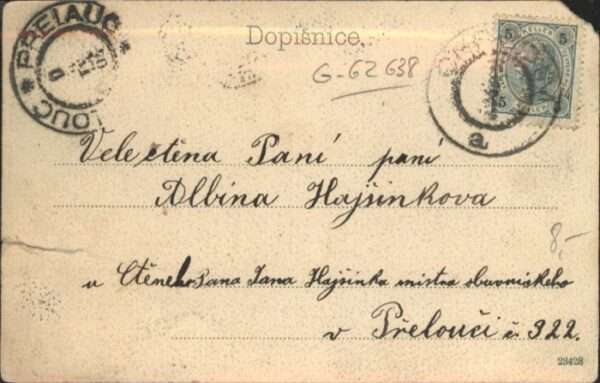 PRELAUC
LOUC
Dopisnice.
5 5
G-62638
a
Velectěna Paní paní
Albina Hajšinkova
8,-
u Ctěneho Pana Jana Hajšinka mistra obuvnickeho
v Přelouči č. 322.
23428